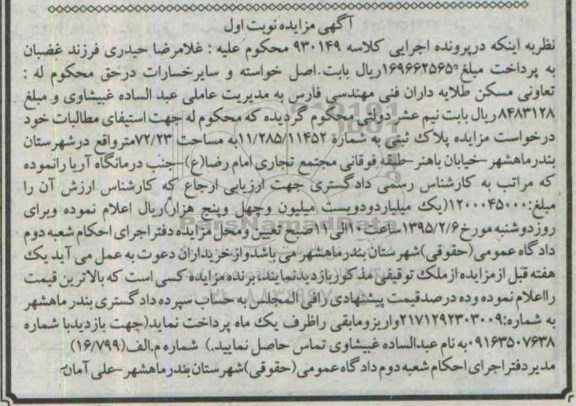 آگهی مزایده نوبت اول
نظربه اینکه درپرونده اجرایی کلاسه ۹۳۰۱۴۹ محکوم علیه : غلامرضا حیدری فرزند غضبان
به پرداخت مبلغ ۱۶۹۶۶۲۵۶۵۰ریال بابت.اصل خواسته و سایرخسارات درحق محکوم له :
تعاونی مسکن طلایه داران فنی مهندسی فارس به مدیریت عاملی عبد الساده غبیشاوی و مبلغ
۸۴۸۳۱۲۸ریال بابت نیم عشر دولتی محکوم گردیده که محکوم له جهت استیفای مطالبات خود
درخواست مزایده پلاک ثبتی به شماره ۱۱/۲۸۵/۱۱۴۵۲به مساحت ۷۲/۲۳مترواقع درشهرستان
بندرماهشهر-خیابان باهنر-طبقه فوقانی مجتمع تجاری امام رضا(ع)-جنب درمانگاه آریا رانموده
که مراتب به کارشناس رسمی دادگستری جهت ارزیابی ارجاع که کارشناس ارزش آن را
مبلغ:۱۲۰۰۰۴۵۰۰۰(یک میلیاردودویست میلیون وچهل وپنج هزار)ریال اعلام نموده وبرای
روزدوشنبه مورخ۱۳۹۵/۲/۶ساعت۱۰الی۱۱صبح تعیین ومحل مزایده دفتراجرای احکام شعبه دوم
دادگاه عمومی(حقوقی)شهرستان بندرماهشهر می باشدوازخریداران دعوت به عمل می آید یک
هفته قبل ازمزایده ازملک توقیفی مذکوربازدیدنمایند،برنده مزایده کسی است که بالاترین قیمت
رااعلام نموده وده درصدقیمت پیشنهادی رافی المجلس به حساب سپرده دادگستری بندرماهشهر
به شماره:۲۱۷۱۲۹۲۳۰۳۰۰۹واریزومابقی راظرف یک ماه پرداخت نماید(جهت بازدیدبا شماره
۰۹۱۶۳۵۰۷۶۳۸به نام عبدالساده غبیشاوی تماس حاصل نمایید.) شماره م.الف(۱۶/۷۹۹)
مدیردفتراجرای احکام شعبه دوم دادگاه عمومی(حقوقی)شهرستان بندرماهشهر-علی آمان